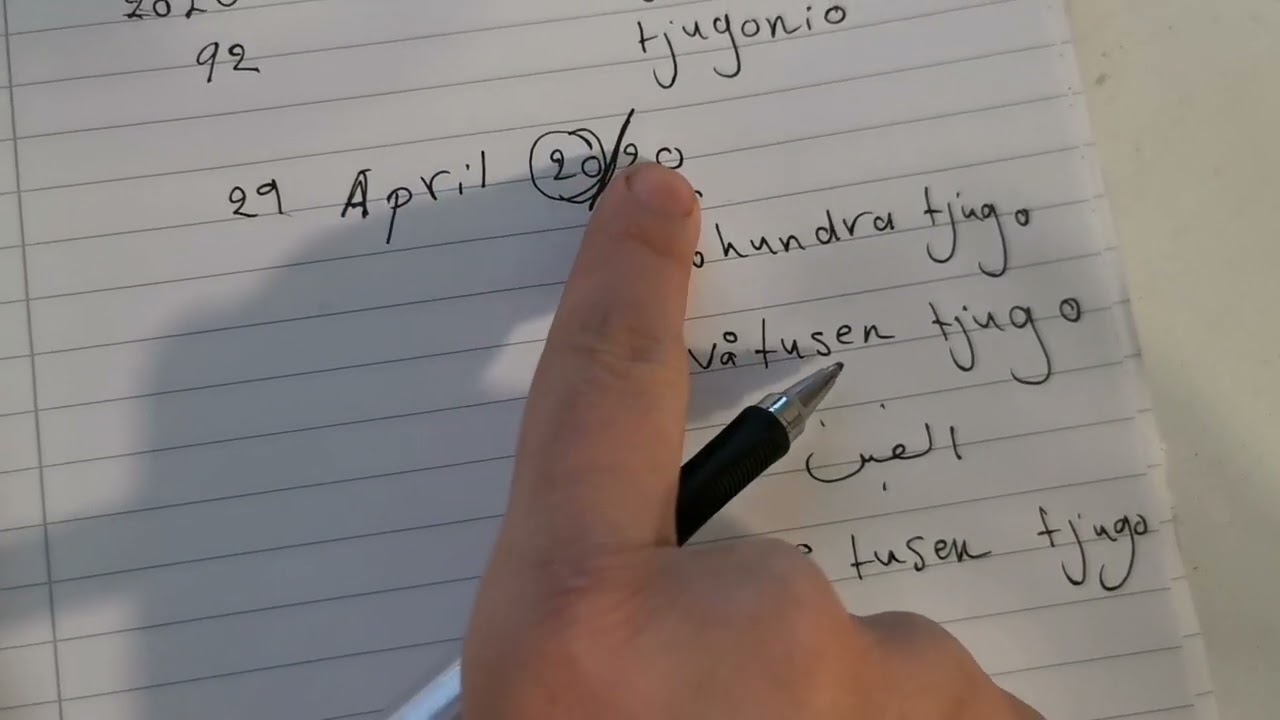 tjugonio
92
29 April 20/20
hundra tjugo
våtusen tjugo
الفين
tusen tjugo